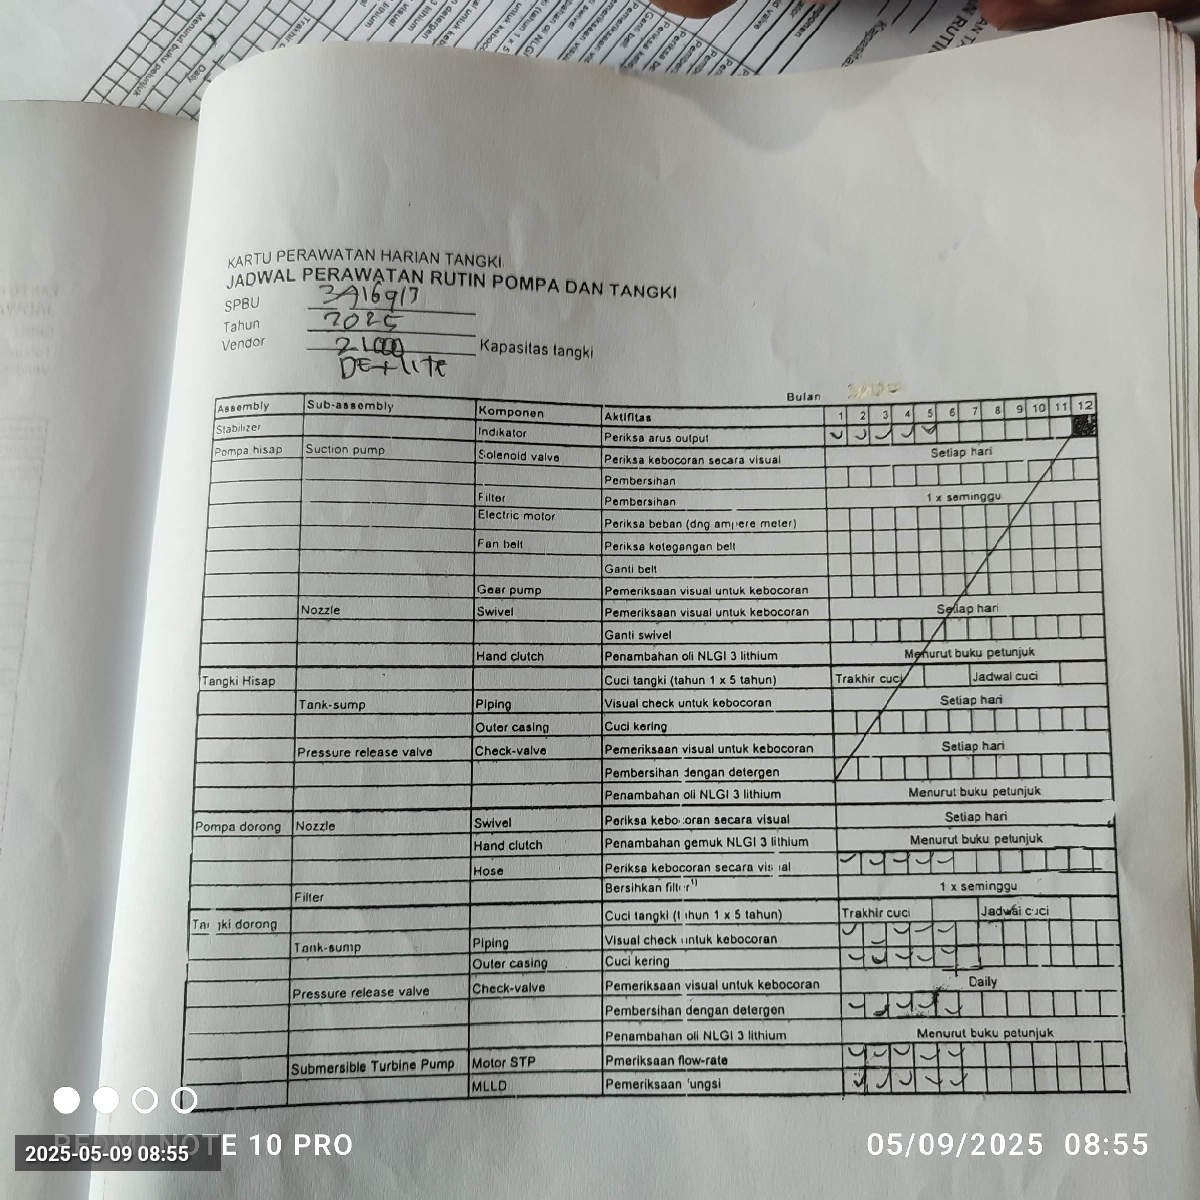 KARTU PERAWATAN HARIAN TANGKI
JADWAL PERAWATAN RUTIN POMPA DAN TANGKI
SPBU 3A16913
Tahun 2025
Vendor 21000 Kapasitas tangki
DEXLITE
Bulan
Assembly Sub-assembly Komponen Aktifitas 1 2 3 4 5 6 7 8 9 10 11 12
Stabilizer Indikator Periksa arus output
Pompa hisap Suction pump Solenoid valve Periksa kebocoran secara visual Setiap hari
Pembersihan
Filter Pembersihan 1 x seminggu
Electric motor Periksa beban (dng ampere meter)
Fan belt Periksa ketegangan belt
Ganti belt
Gear pump Pemeriksaan visual untuk kebocoran
Nozzle Swivel Pemeriksaan visual untuk kebocoran Setiap hari
Ganti swivel
Hand clutch Penambahan oli NLGI 3 lithium Menurut buku petunjuk
Tangki Hisap Cuci tangki (tahun 1 x 5 tahun) Trakhir cuci Jadwal cuci
Tank-sump Piping Visual check untuk kebocoran Setiap hari
Outer casing Cuci kering
Pressure release valve Check-valve Pemeriksaan visual untuk kebocoran Setiap hari
Pembersihan dengan detergen
Penambahan oli NLGI 3 lithium Menurut buku petunjuk
Pompa dorong Nozzle Swivel Periksa kebocoran secara visual Setiap hari
Hand clutch Penambahan gemuk NLGI 3 lithium Menurut buku petunjuk
Hose Periksa kebocoran secara visual
Filter Bersihkan filter 1) 1 x seminggu
Tangki dorong Cuci tangki (tahun 1 x 5 tahun) Trakhir cuci Jadwal cuci
Tank-sump Piping Visual check untuk kebocoran
Outer casing Cuci kering
Pressure release valve Check-valve Pemeriksaan visual untuk kebocoran Daily
Pembersihan dengan detergen
Penambahan oli NLGI 3 lithium Menurut buku petunjuk
Submersible Turbine Pump Motor STP Pmeriksaan flow-rate
MLLD Pemeriksaan fungsi
REDMI NOTE 10 PRO
2025-05-09 08:55
05/09/2025 08:55